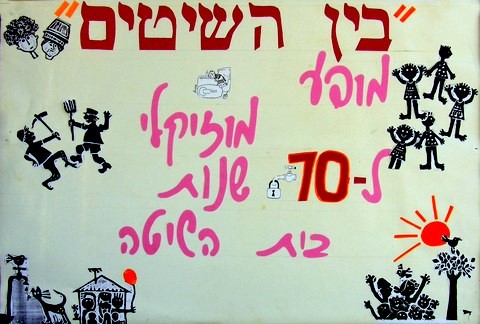 "בין השיטים"
מופע
מוזיקלי
ל-70 שנות
בית השיטה